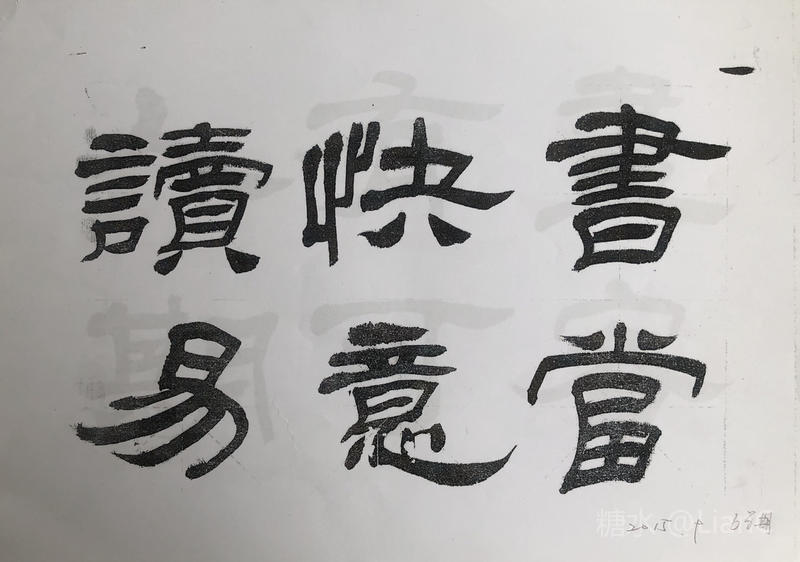 一
書當
快意
讀易
2015.9
糖水 @Lia